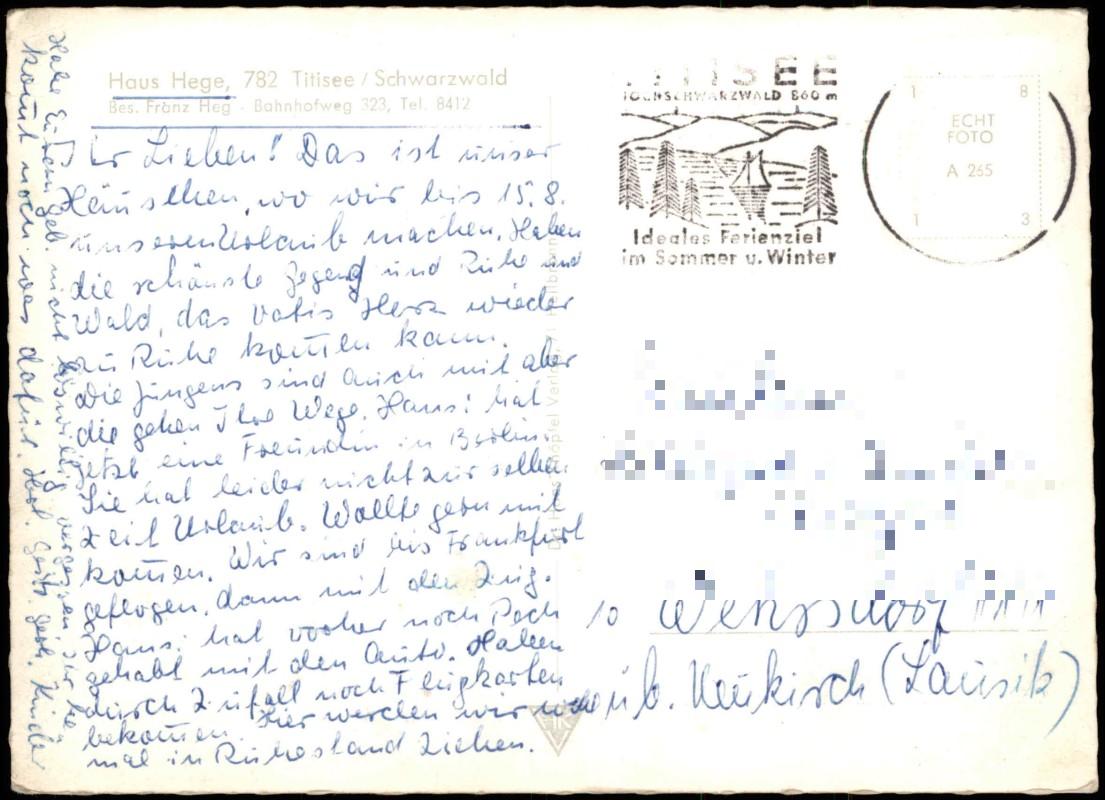 Haus Hege, 782 Titisee / Schwarzwald
Bes. Franz Heg · Bahnhofweg 323, Tel. 8412
Ihr Lieben! Das ist unser
Häuschen, wo wir bis 15.8.
unseren Urlaub machen. Haben
die schönste Gegend und Ruhe und
Wald, das Vatis Herz wieder
zu Ruhe kommen kann.
Die Jungens sind auch mit aber
die gehen Ihre Wege. Hansi hat
jetzt eine Freundin in Berlin.
Sie hat leider nicht zur selben
Zeit Urlaub. Wollte gern mit
kommen. Wir sind bis Frankfurt
geflogen, dann mit den Zug.
Hansi hat vorher noch Pech
gehabt mit den Auto. Haben
durch Zufall noch Flugkarten
bekommen. Hier werden wir
mal in Ruhestand ziehen.
Habe Eurem Geb. nicht böswillig vergessen Ihr
kommt noch was dafür. Herzl. Kinder
TITISEE
HOCHSCHWARZWALD 860 m
Ideales Ferienziel
im Sommer u. Winter
1 8
ECHT
FOTO
A 265
1 3
Schöpfel Verlag Heilbronn
üb. Neukirch (Lausitz)